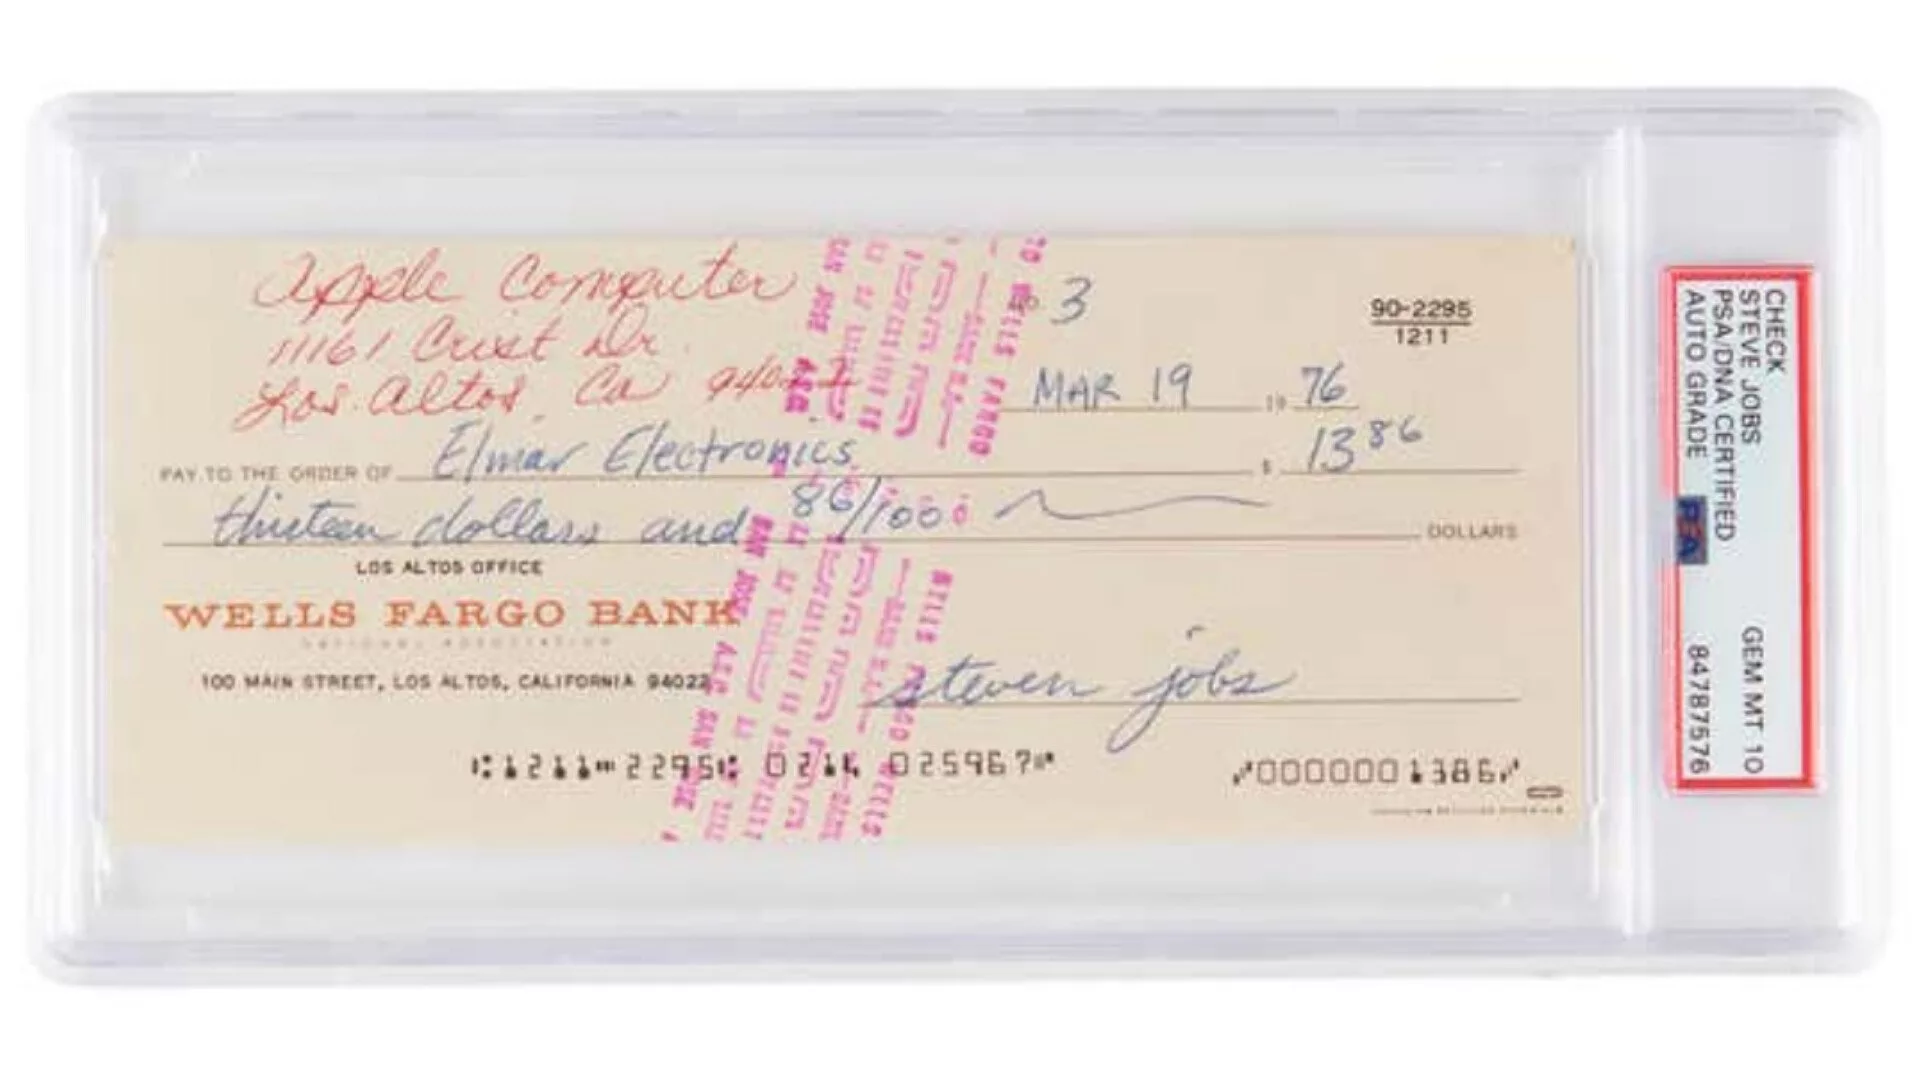 apple Computer
11161 Crist Dr.
Los Altos, Ca
No. 3
90-2295
1211
MAR 19 19 76
PAY TO THE ORDER OF Elmar Electronics $ 13 86
thirteen dollars and 86/100 DOLLARS
LOS ALTOS OFFICE
WELLS FARGO BANK
NATIONAL ASSOCIATION
100 MAIN STREET, LOS ALTOS, CALIFORNIA 94022
steven jobs
1211 2295 0214 025967
0000001386
WELLS FARGO
SAN JOSE
CHECK
STEVE JOBS
PSA/DNA CERTIFIED
AUTO GRADE
GEM MT 10
84787576
PSA